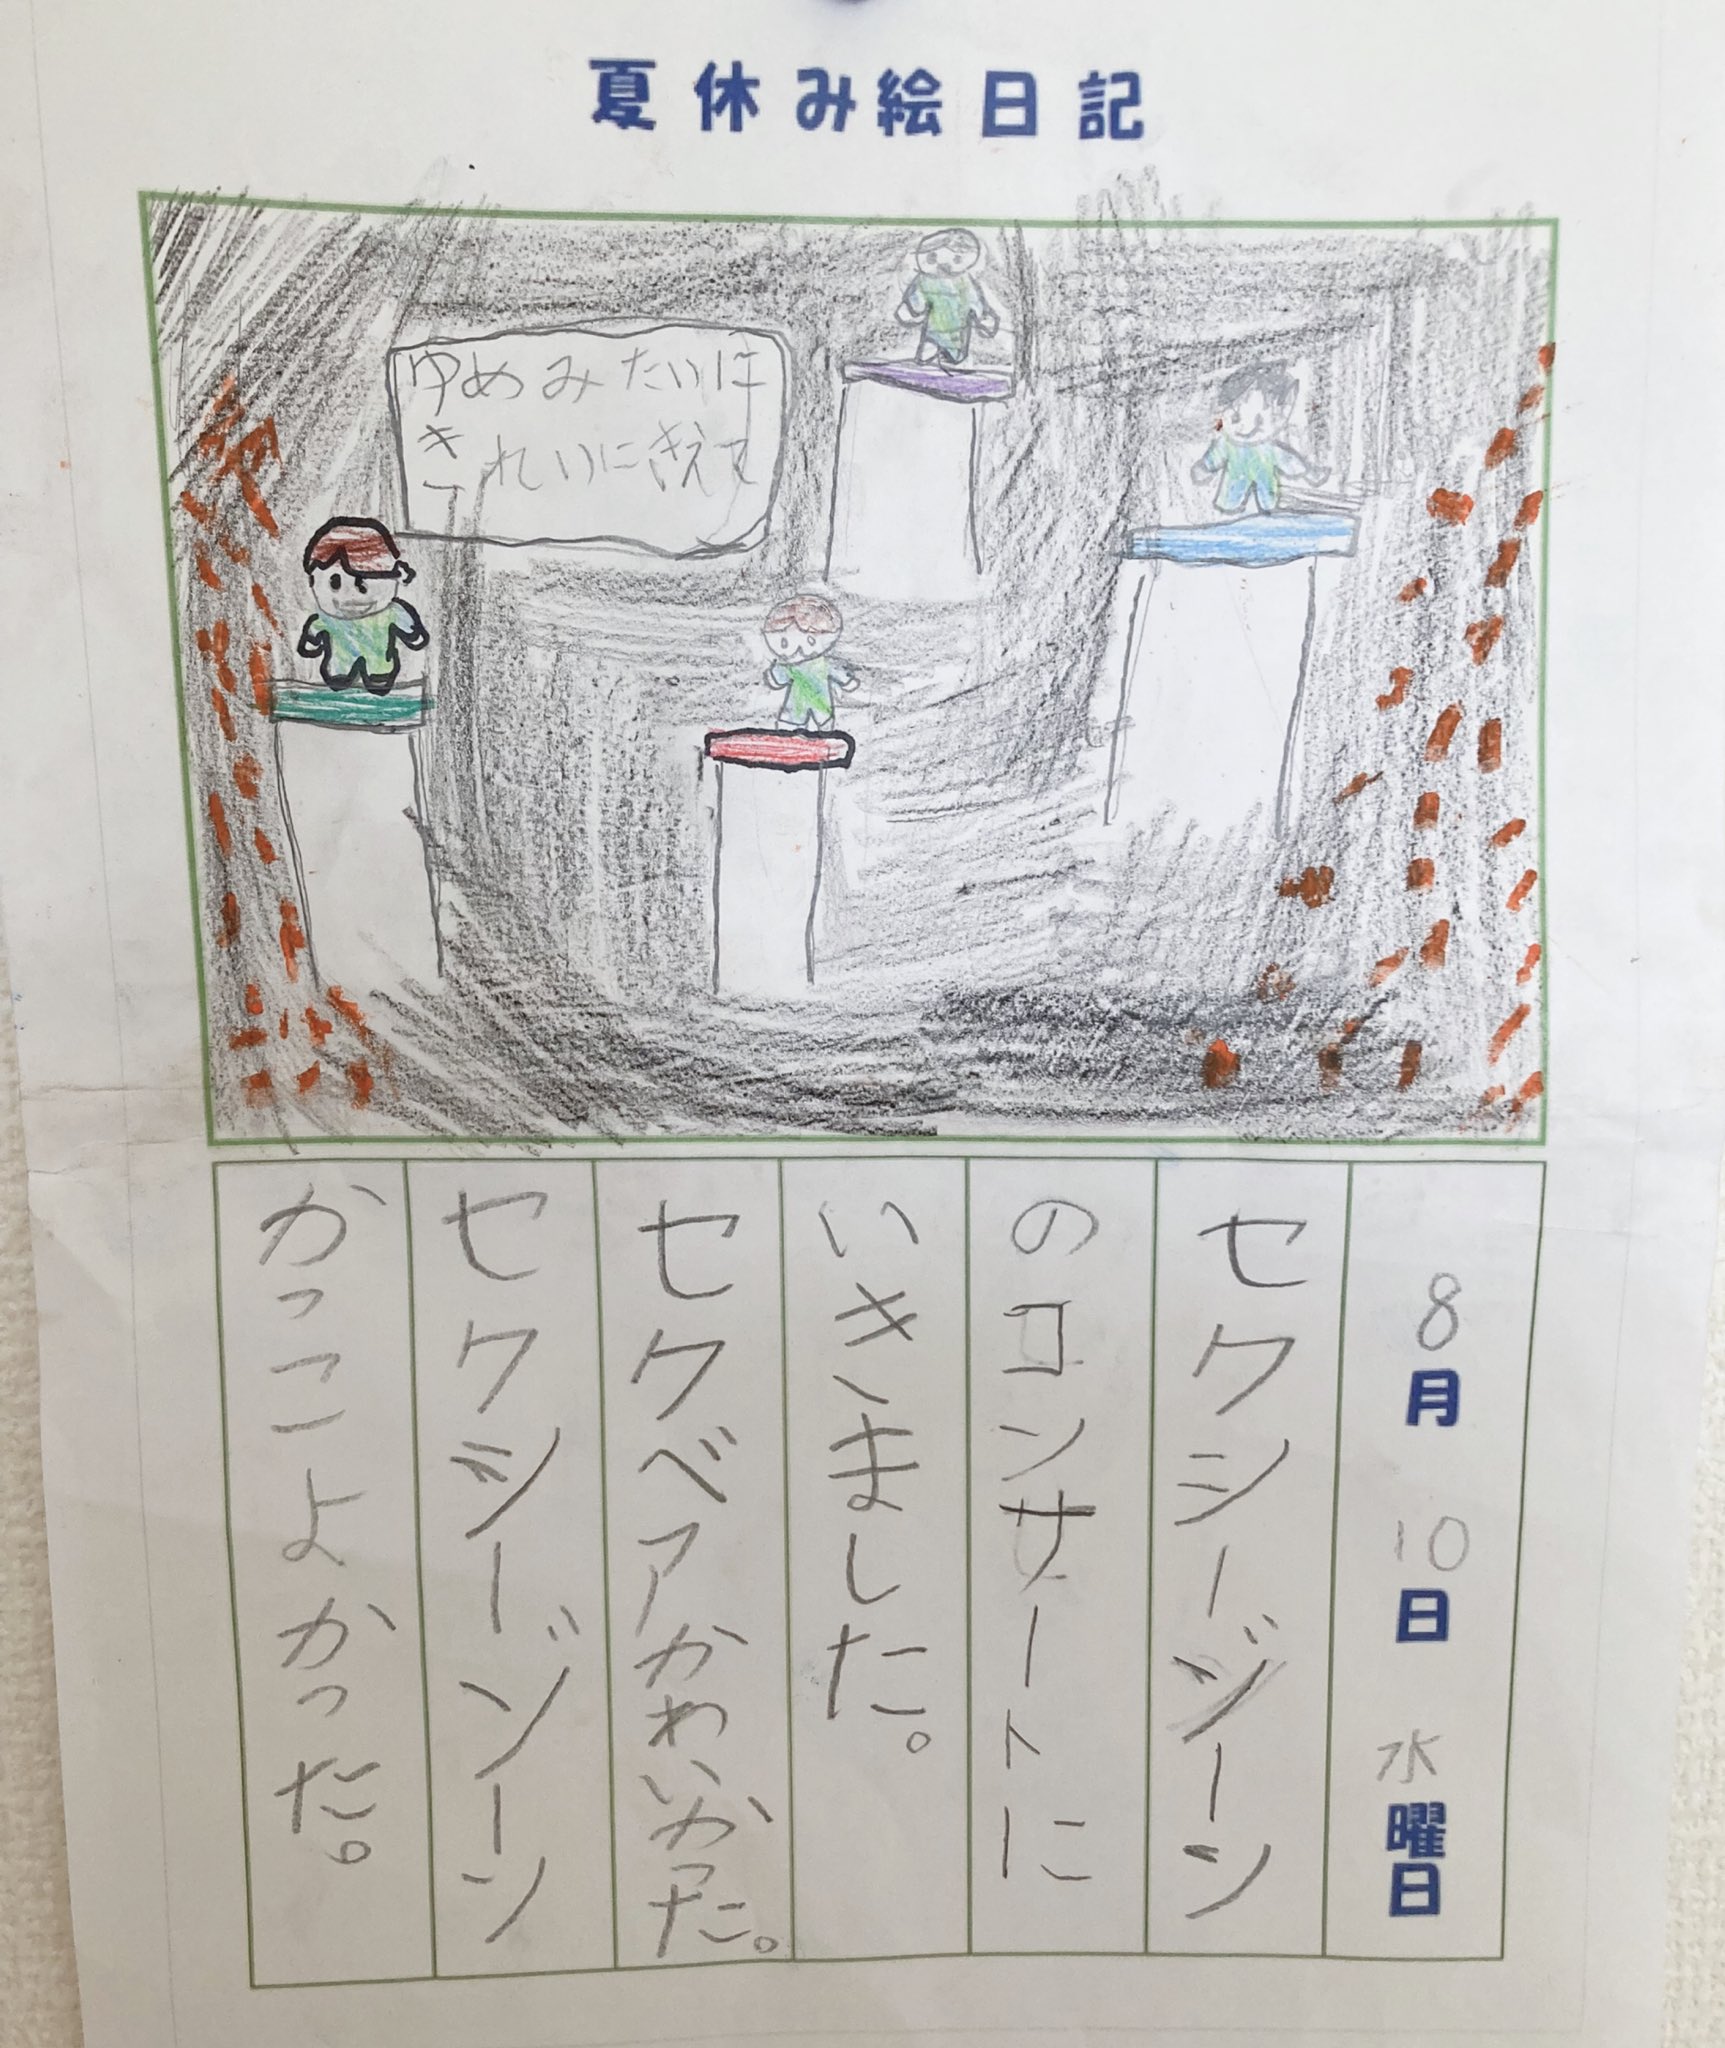 夏休み絵日記
ゆめみたいに
きれいにきえて
8月10日水曜日
セクシージーン
のコンサートに
いきました。
セクベアかわいかった。
セクシーゾーン
かっこよかった。